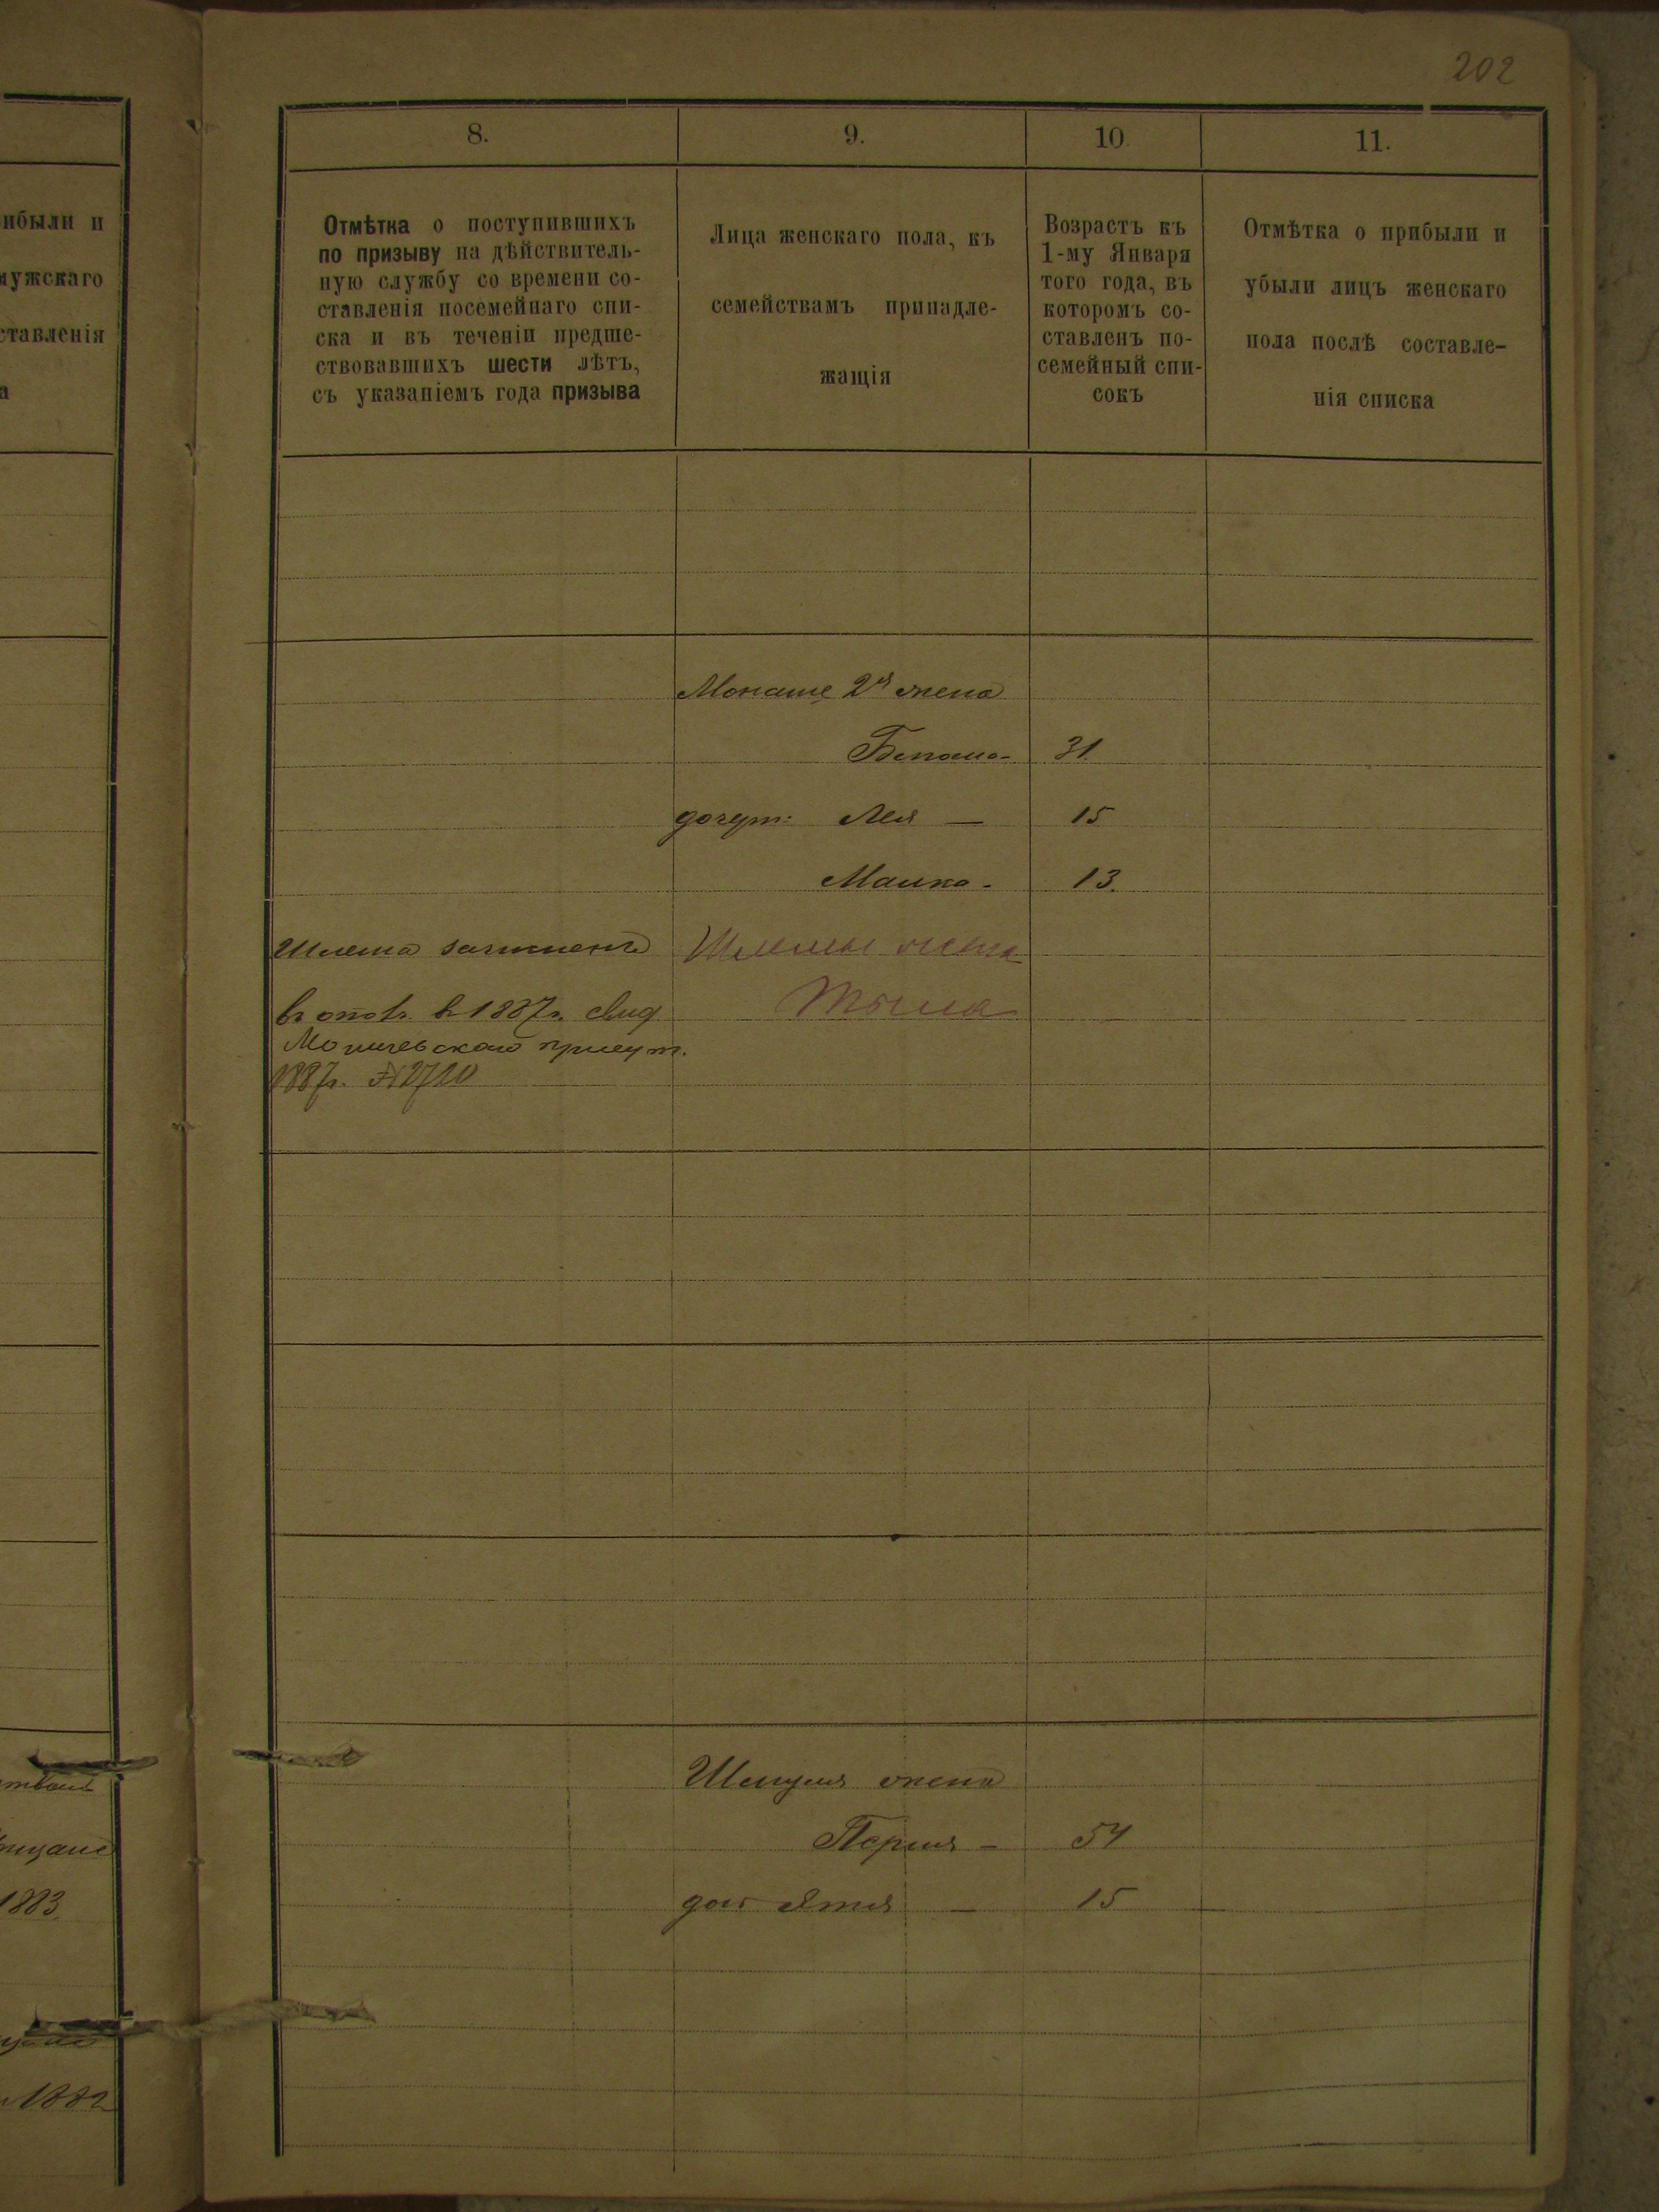 202
8.
9.
10.
11.
ибыли и
мужскаго
ставленія
а
Отмѣтка о поступившихъ
по призыву на дѣйствитель-
ную службу со времени со-
ставленія посемейнаго спи-
ска и въ теченіи предше-
ствовавшихъ шести лѣтъ,
съ указаніемъ года призыва
Лица женскаго пола, къ
семействамъ принадле-
жащія
Возрастъ къ
1-му Января
того года, въ
которомъ со-
ставленъ по-
семейный спи-
сокъ
Отмѣтка о прибыли и
убыли лицъ женскаго
пола послѣ составле-
нія списка
2я жена
31
Лея — 15
Малка - 13.
зачисленъ
жена
1887г. свид
присут.
1887г. №
жена
54
доч 15
1883
1882